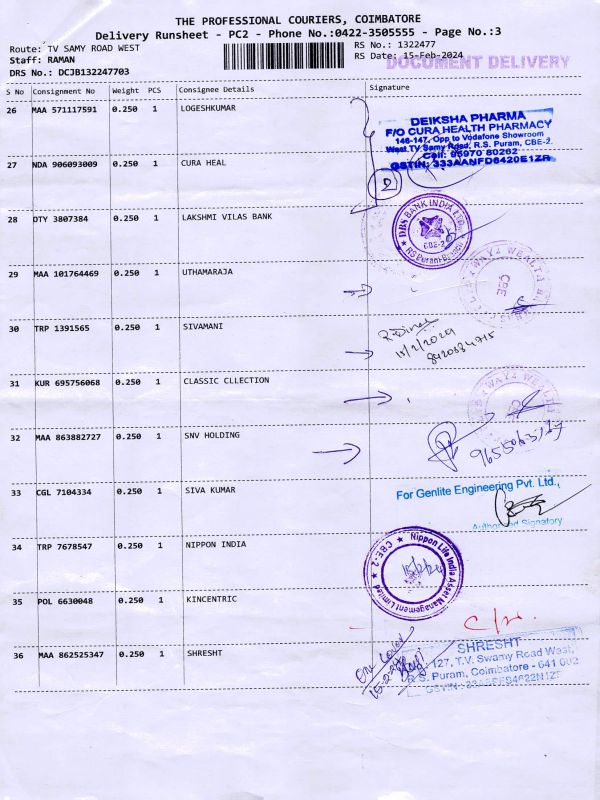 THE PROFESSIONAL COURIERS, COIMBATORE
Delivery Runsheet - PC2 - Phone No.:0422-3505555 - Page No.:3
Route: TV SAMY ROAD WEST
RS No.: 1322477
Staff: RAMAN
RS Date: 15-Feb-2024
DOCUMENT DELIVERY
DRS No.: DCJB132247703
S No Consignment No Weight PCS Consignee Details Signature
26 MAA 571117591 0.250 1 LOGESHKUMAR
DEIKSHA PHARMA
F/O CURA HEALTH PHARMACY
146-147, Opp to Vodafone Showroom
West TV Samy Road, R.S. Puram, CBE-2.
Cell: 95970 80262
GSTIN: 333AANFD6420E1ZR
27 NDA 906093009 0.250 1 CURA HEAL
2
28 DTY 3807384 0.250 1 LAKSHMI VILAS BANK
DBS BANK INDIA LTD
CBE-2
RS Puram Branch
29 MAA 101764469 0.250 1 UTHAMARAJA
WEALTH
CBE
30 TRP 1391565 0.250 1 SIVAMANI
15/2/2024
31 KUR 695756068 0.250 1 CLASSIC CLLECTION
WEALTH
32 MAA 863882727 0.250 1 SNV HOLDING
33 CGL 7104334 0.250 1 SIVA KUMAR
For Genlite Engineering Pvt. Ltd.,
Authorised Signatory
34 TRP 7678547 0.250 1 NIPPON INDIA
Nippon Life India Asset Management Limited
CBE-2
15/2/24
35 POL 6630048 0.250 1 KINCENTRIC
36 MAA 862525347 0.250 1 SHRESHT
One Cover
SHRESHT
127, T.V. Swamy Road West,
R.S. Puram, Coimbatore - 641 002